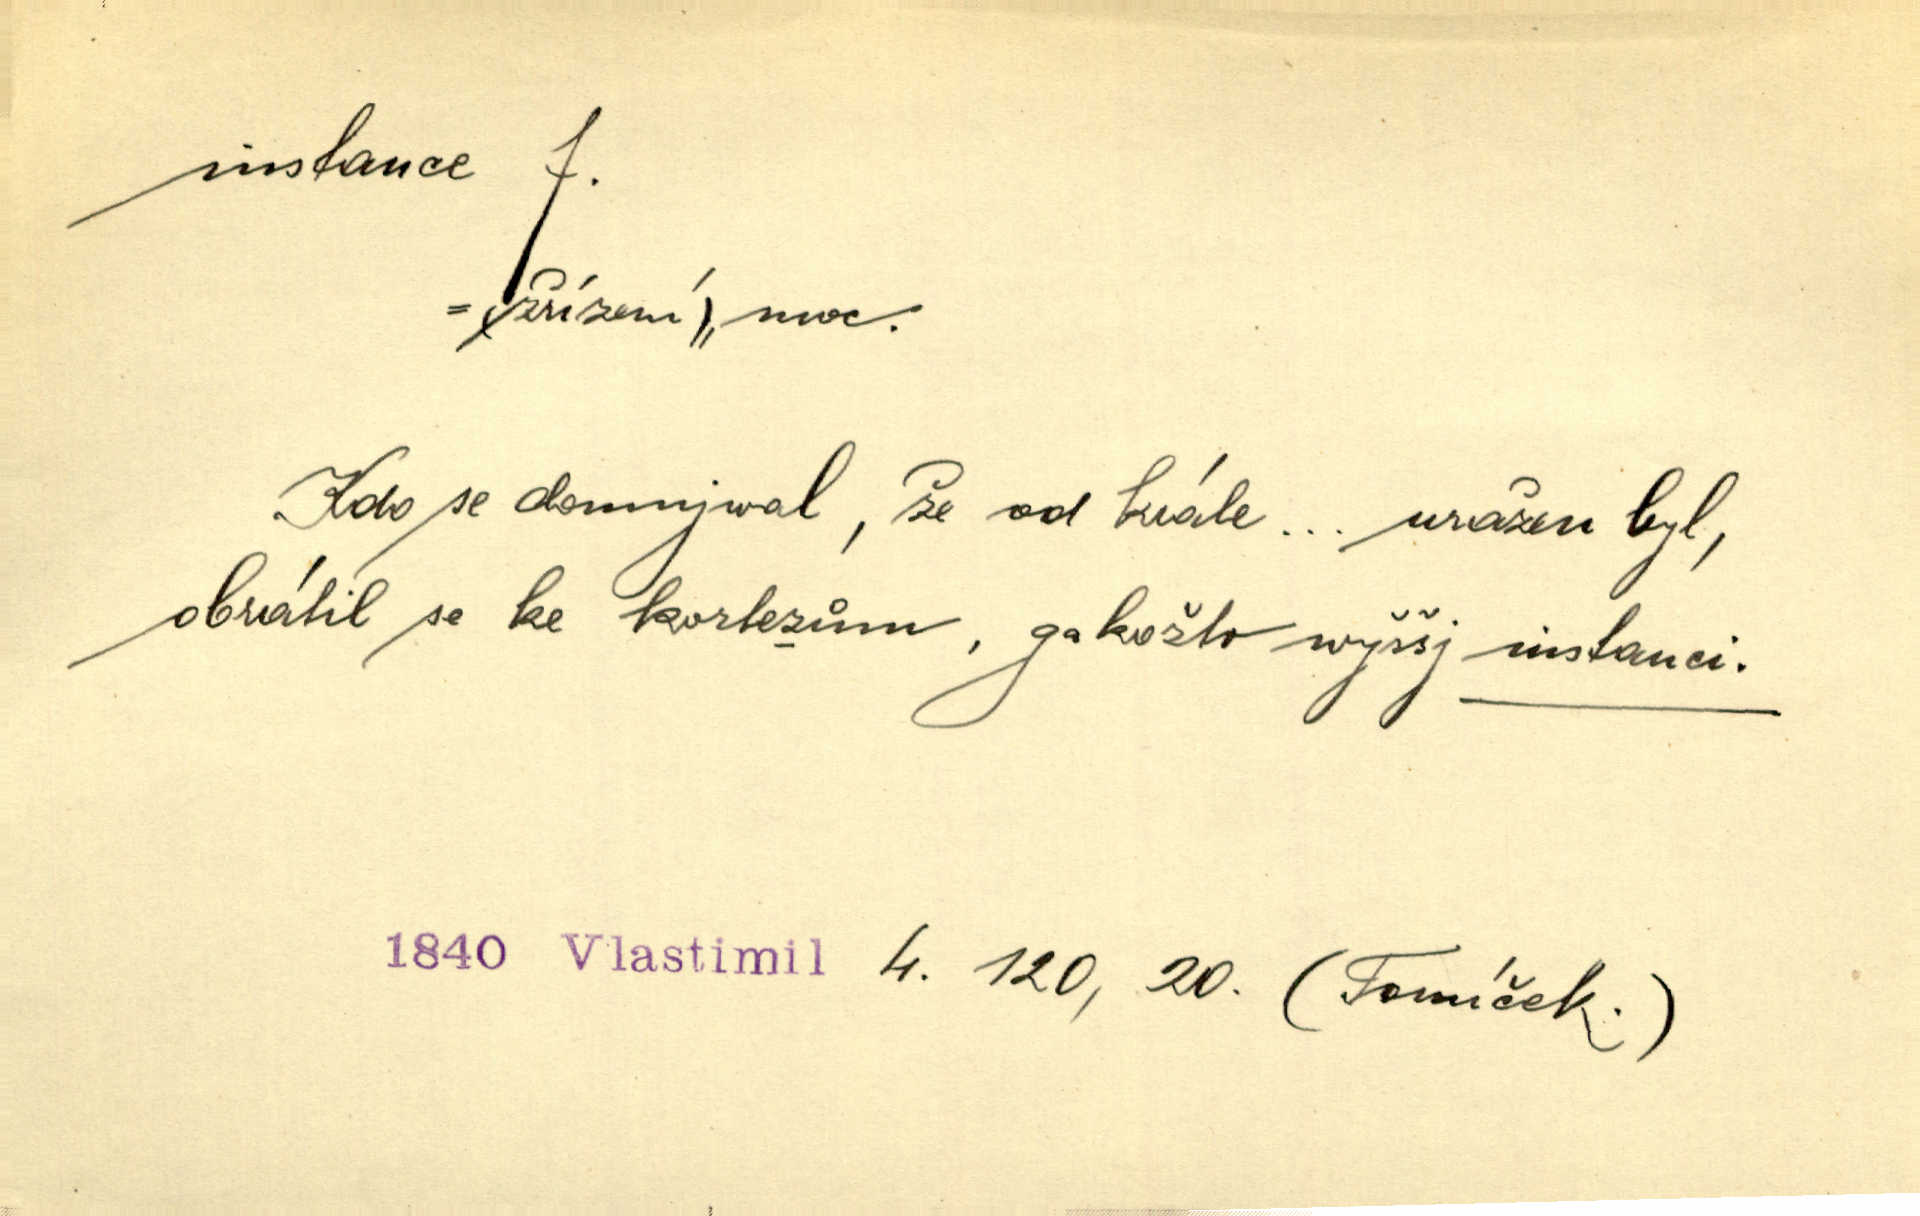 instance f.
= (zřízení), moc.
Kdo se domnjwal, že od krále ... uražen byl,
obrátil se ke kortezům, gakožto wyššj instanci.
1840 Vlastimil 4. 120, 20. (Tomíček.)